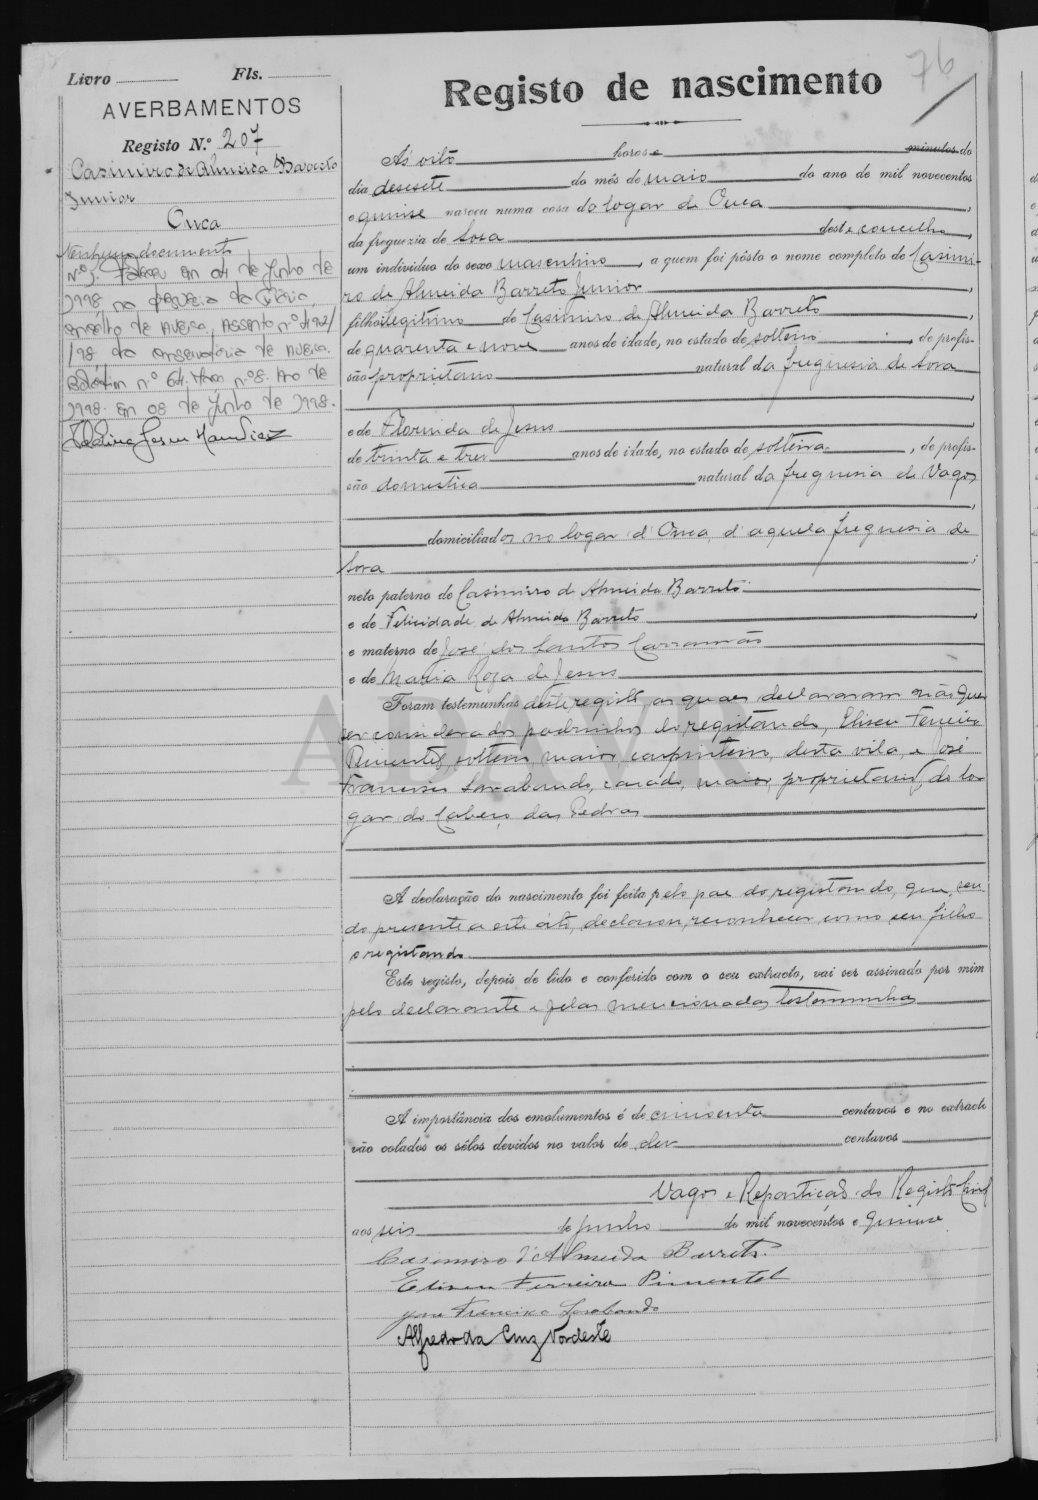 76
Livro Fls.
AVERBAMENTOS
Registo N.º 207
Casimiro de Almeida Barreto
Junior
Ouca
Nenhum documento
Nº 1. Faleceu em 04 de Junho de
1998 na freguesia da Glória,
concelho de Aveiro, Assento nº
/98 da Conservatória de Aveiro.
Boletim nº 64. Maço nº 8. Ano de
1998. Em 08 de Junho de 1998.
Registo de nascimento
Ás oito horas e minutos do
dia desesete do mês de maio do ano de mil novecentos
e quinse nasceu numa casa do logar de Ouca,
da freguezia de Sosa deste concelho,
um individuo do sexo masculino, a quem foi pôsto o nome completo de Casimi-
ro de Almeida Barreto Junior,
filho ilegitimo de Casimiro de Almeida Barreto,
de quarenta e nove anos de idade, no estado de solteiro, de profis-
são proprietario natural da freguesia de Sosa
,
e de Florinda de Jesus,
de trinta e tres anos de idade, no estado de solteira, de profis-
são domestica natural da freguesia de Vagos
,
domiciliados no logar d'Ouca, d'aquela freguesia de
Sosa;
neto paterno de Casimiro de Almeida Barreto
e de Felicidade de Almeida Barreto,
e materno de José dos Santos Carramão
e de Maria Roza de Jesus
Foram testemunhas deste registo, as quaes declararam não quer
ser considerados padrinhos do registando, Eliseu Ferreira
Pimentel, solteiro, maior, carpinteiro, desta vila, e José
Francisco Sarabando, casado, maior, proprietario, do lo-
gar do Cabeço das Pedras
A declaração do nascimento foi feita pelo pae do registando, que, sen-
do presente a este áto, declarou reconhecer como seu filho
o registando.
Este registo, depois de lido e conferido com o seu extracto, vai ser assinado por mim
pelo declarante e pelas mencionadas testemunhas
A importância dos emolumentos é de cincoenta centavos e no extracto
vão colados os sêlos devidos no valor de dez centavos
Vagos e Repartição do Registo Civil
aos seis de Junho de mil novecentos e quinse.
Casimiro d'Almeida Barreto.
Eliseu Ferreira Pimentel
José Francisco Sarabando
Alfredo da Cruz Nordeste